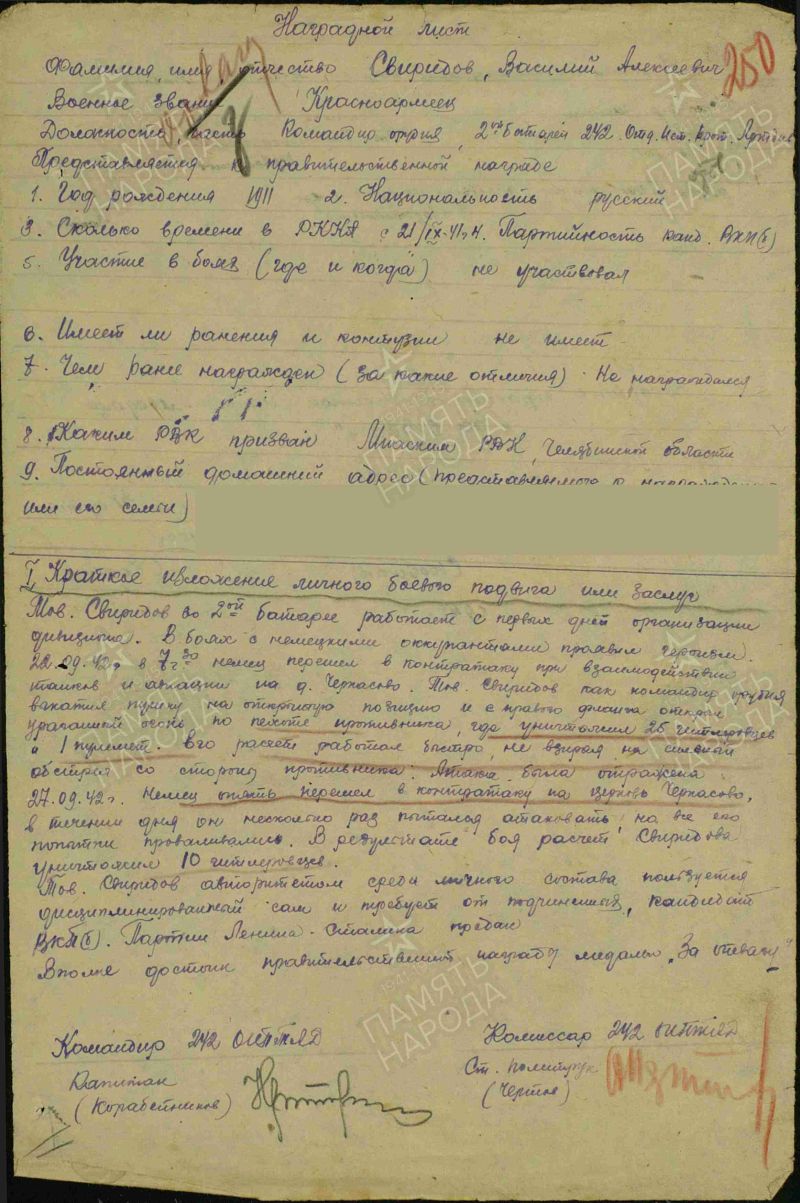 Наградной лист
250
Фамилия, имя, отчество Свиридов, Василий Алексеевич
Военное звание Красноармеец
Должность, часть Командир орудия, 2ой батареи 242 Отд. Ист. Прот. Арт див
Представляется к правительственной награде
1. Год рождения 1911 2. Национальность русский
3. Сколько времени в РККА с 21/IX-41г 4. Партийность канд. ВКП(б)
5. Участие в боях (где и когда) не участвовал
6. Имеет ли ранения и контузии не имеет
7. Чем ранее награжден (за какие отличия) Не награждался
8. Каким РВК призван Миасским РВК, Челябинской области
9. Постоянный домашний адрес (представляемого к
или его семьи)
I Краткое изложение личного боевого подвига или заслуг
Тов. Свиридов во 2ой батарее работает с первых дней организации
дивизиона. В боях с немецкими оккупантами проявил героизм.
22.09.42г в 7г 30 немец перешел в контратаку при взаимодействии
танков и авиации на д. Черкасово. Тов. Свиридов как командир орудия
выкатил пушку на открытую позицию и с правого фланга открыл
ураганный огонь по пехоте противника, где уничтожил 25 гитлеровцев
и 1 пулемет. Его расчет работал быстро, не взирая на сильный
обстрел со стороны противника. Атака была отражена
27.09.42г. Немец опять перешел в контратаку на церковь Черкасово,
в течении дня он несколько раз пытался атаковать но все его
попытки проваливались. В результате боя расчет Свиридова
уничтожил 10 гитлеровцев.
Тов. Свиридов авторитетом среди личного состава пользуется
дисциплинированный сам и требует от подчиненных, кандидат
ВКП(б). Партии Ленина-Сталина предан
Вполне достоин правительственной награды медаль "За отвагу"
Командир 242 ОИПТАД
Комиссар 242 ОИПТАД
Капитан
Ст. политрук
(Корабетников)
ПАМЯТЬ
НАРОДА